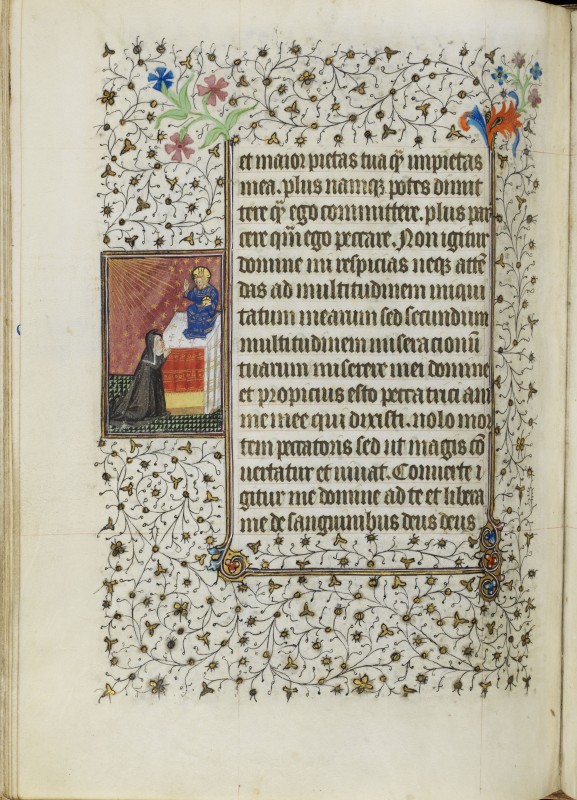 et maior pietas tua qͣ impietas
mea. plus namqꝫ potes dimit
tere qͣ ego committere. plus par
cere qͣm ego peccare. Non igitur
domine mi respicias neqꝫ attē
das ad multitudinem iniqui
tatum mearum sed secundum
multitudinem miseracionū
tuarum miserere mei domine
et propicius esto peccatrici ani
me mee qui dixisti. nolo mor
tem peccatoris sed ut magis cō
uertatur et uiuat. Conuerte i
gitur me domine ad te et libera
me de sanguinibus deus deus